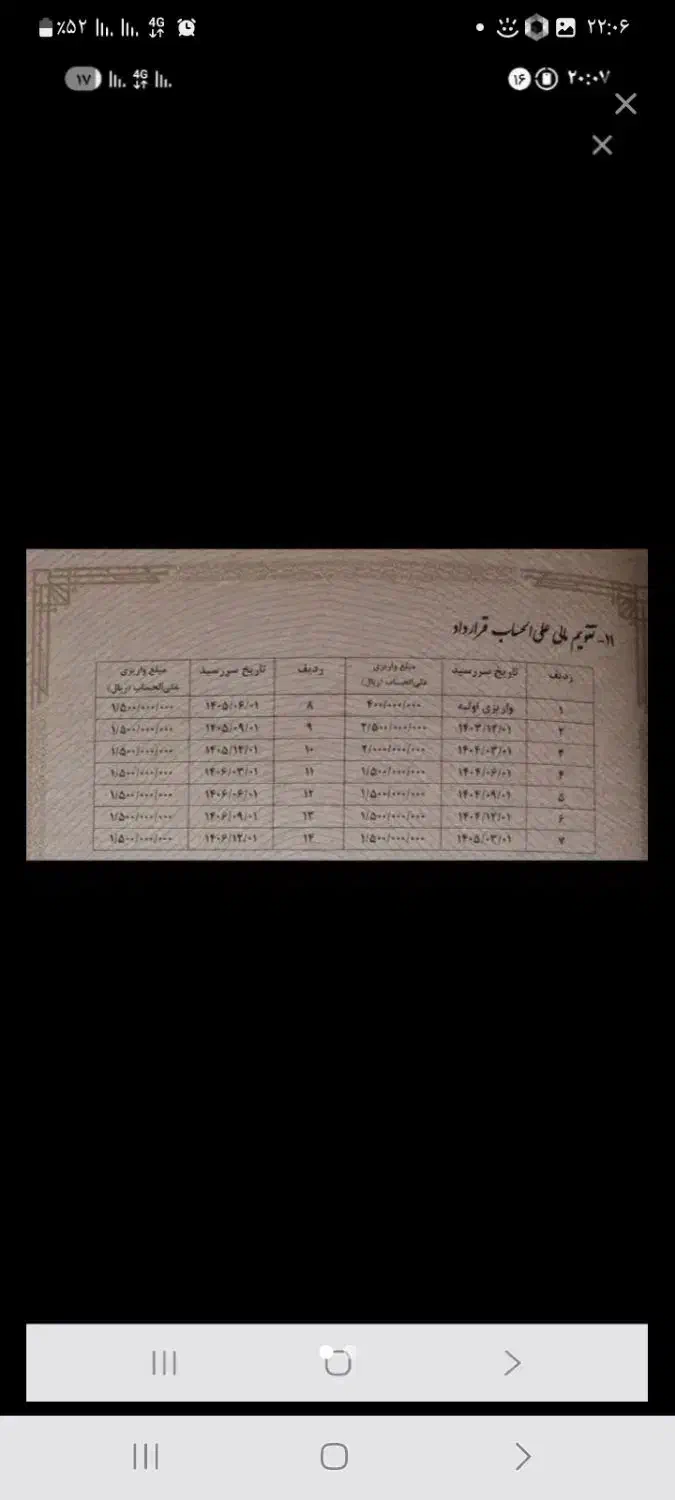 ٪۵۲ 4G ۲۲:۰۶
۱۷ 4G ۱۶ ۲۰:۰۷
۱۱- تقویم مالی علی‌الحساب قرارداد
ردیف تاریخ سررسید مبلغ واریزی علی‌الحساب (ریال) ردیف تاریخ سررسید مبلغ واریزی علی‌الحساب (ریال)
۱ واریزی اولیه ۴۰۰/۰۰۰/۰۰۰ ۸ ۱۴۰۵/۰۶/۰۱ ۱/۵۰۰/۰۰۰/۰۰۰
۲ ۱۴۰۳/۱۲/۰۱ ۲/۵۰۰/۰۰۰/۰۰۰ ۹ ۱۴۰۵/۰۹/۰۱ ۱/۵۰۰/۰۰۰/۰۰۰
۳ ۱۴۰۴/۰۳/۰۱ ۲/۰۰۰/۰۰۰/۰۰۰ ۱۰ ۱۴۰۵/۱۲/۰۱ ۱/۵۰۰/۰۰۰/۰۰۰
۴ ۱۴۰۴/۰۶/۰۱ ۱/۵۰۰/۰۰۰/۰۰۰ ۱۱ ۱۴۰۶/۰۳/۰۱ ۱/۵۰۰/۰۰۰/۰۰۰
۵ ۱۴۰۴/۰۹/۰۱ ۱/۵۰۰/۰۰۰/۰۰۰ ۱۲ ۱۴۰۶/۰۶/۰۱ ۱/۵۰۰/۰۰۰/۰۰۰
۶ ۱۴۰۴/۱۲/۰۱ ۱/۵۰۰/۰۰۰/۰۰۰ ۱۳ ۱۴۰۶/۰۹/۰۱ ۱/۵۰۰/۰۰۰/۰۰۰
۷ ۱۴۰۵/۰۳/۰۱ ۱/۵۰۰/۰۰۰/۰۰۰ ۱۴ ۱۴۰۶/۱۲/۰۱ ۱/۵۰۰/۰۰۰/۰۰۰